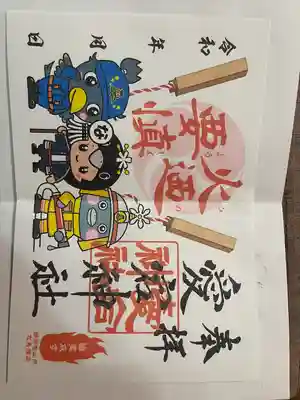 奉拝
火迺要慎
愛宕神社
愛宕神社
令和 年 月 日